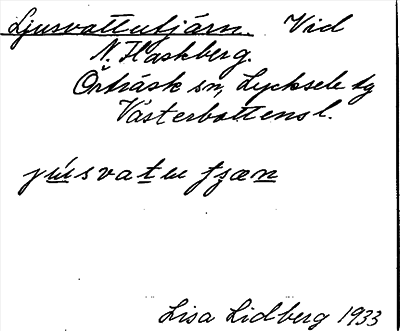 Ljusvattutjärn. Vid
N. Flaskberg.
Örträsk sn, Lycksele tg
Västerbottens l.
jʉ́svatɯ tjæn
Lisa Lidberg 1933